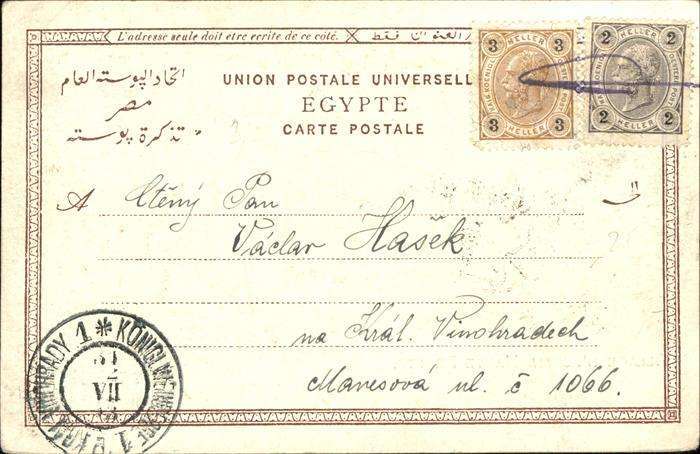 L'adresse seule doit etre ecrite de ce côté.
فقط
3 HELLER 3
3 HELLER 3
2 HELLER 2
2 HELLER 2
اتحاد البوستة العام
مصر
تذكرة بوستة
UNION POSTALE UNIVERSELL
EGYPTE
CARTE POSTALE
A Ctěný Pan
Václav Hašek
na Král. Vinohradech
Manesová ul. č 1066.
1 * KÖNIGL. WEINBERGE
VII